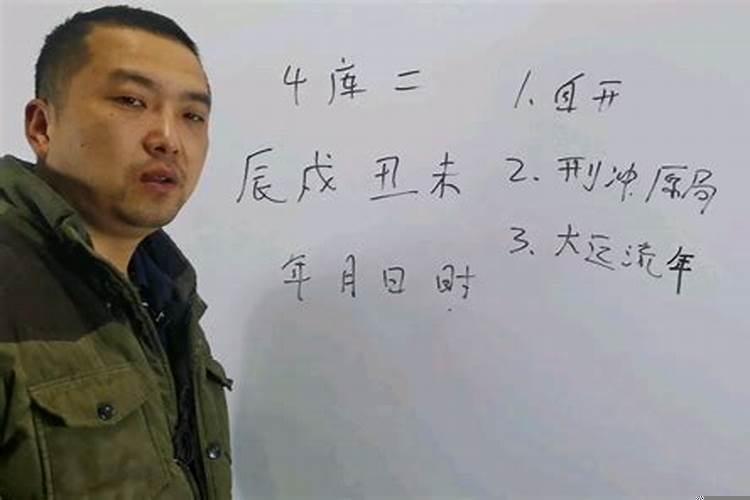 4库二
辰戍丑未
年月日时
1.自开
2.刑冲原局
3、大运流年